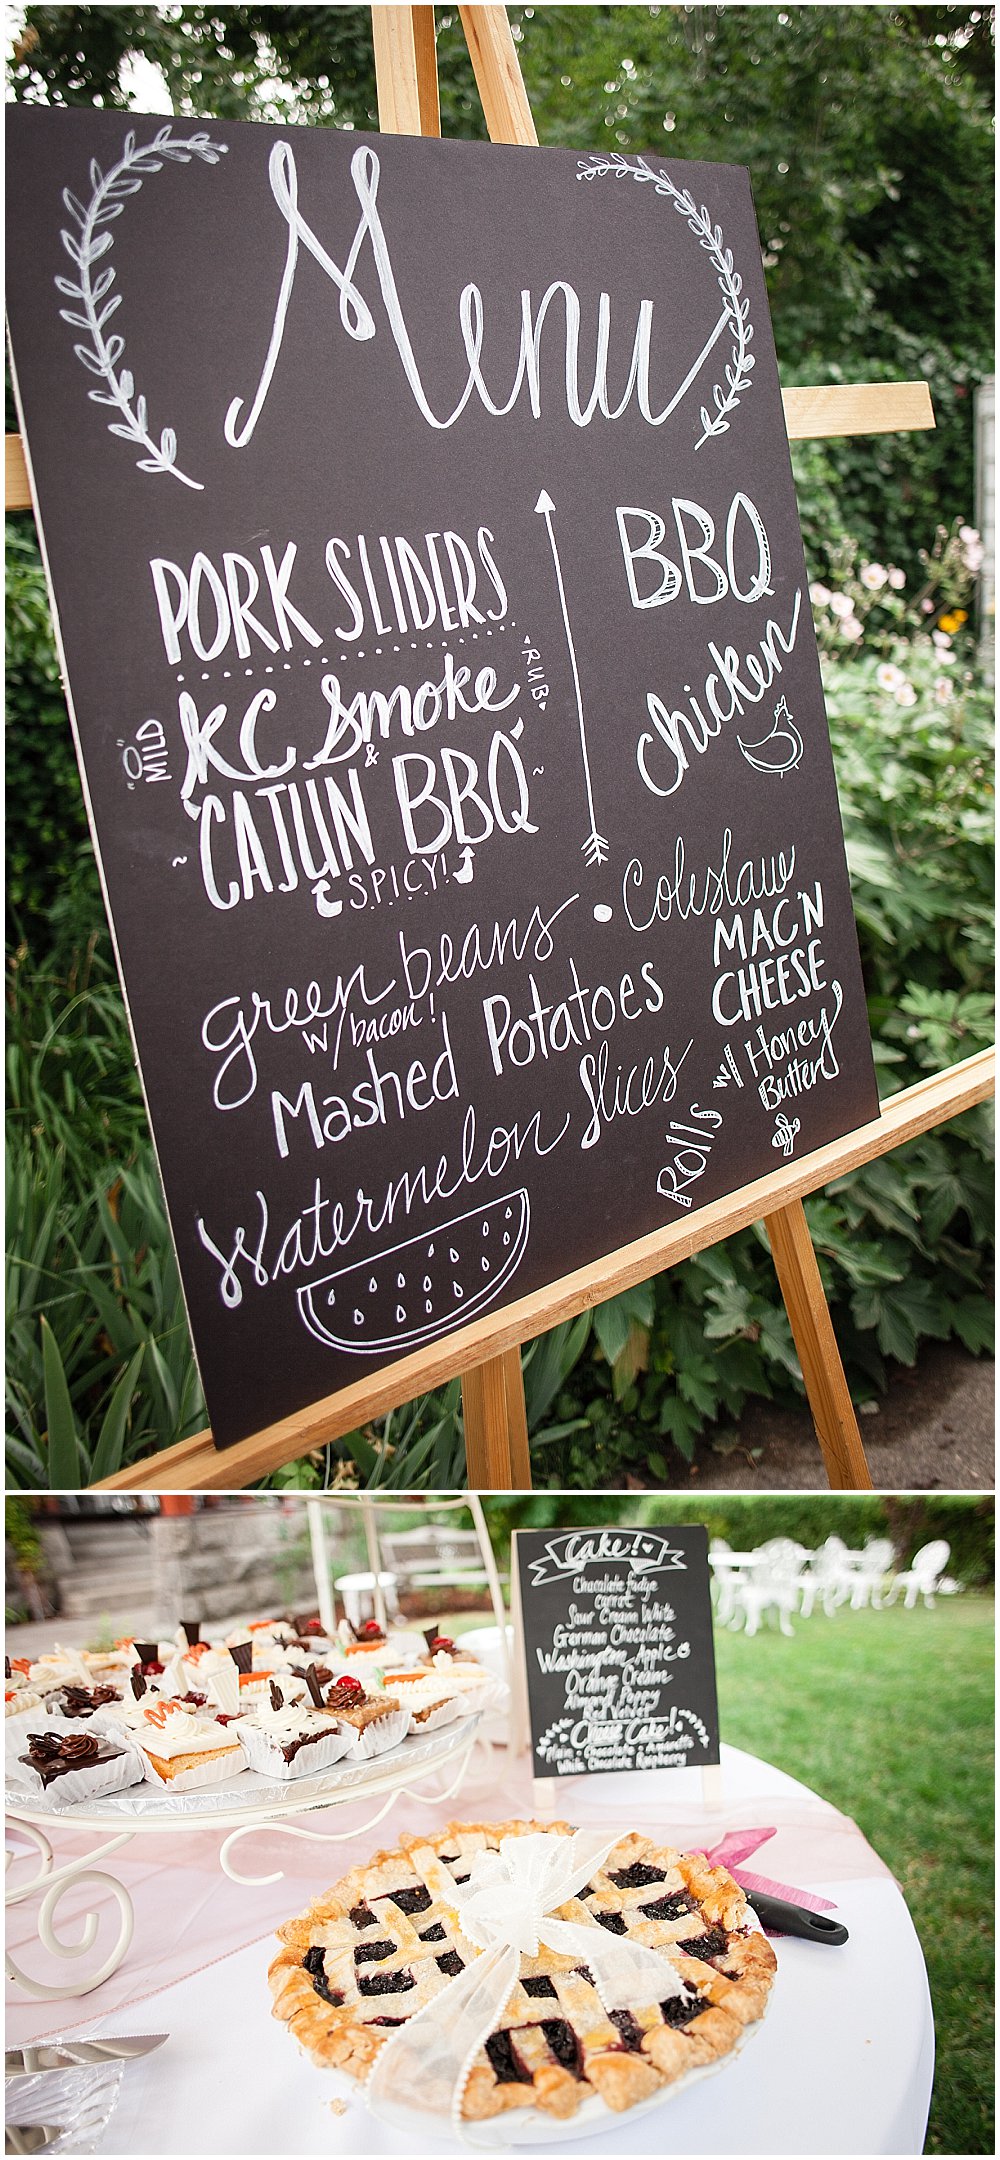 Menu
PORK SLIDERS
"O" MILD
KC Smoke
♥RUB♥
&
CAJUN BBQ
~ ~
SPICY!
BBQ
chicken
green beans • Coleslaw
w/bacon!
MAC'N
CHEESE
Mashed Potatoes
Watermelon Slices
ROLLS w/ Honey
Butter
Cake!♥
Chocolate fudge
carrot
Sour Cream White
German Chocolate
Washington Apple
Orange Creme
Almond Poppy
Red Velvet
Cheese Cake!
Plain • Chocolate • Amaretto
White Chocolate Raspberry